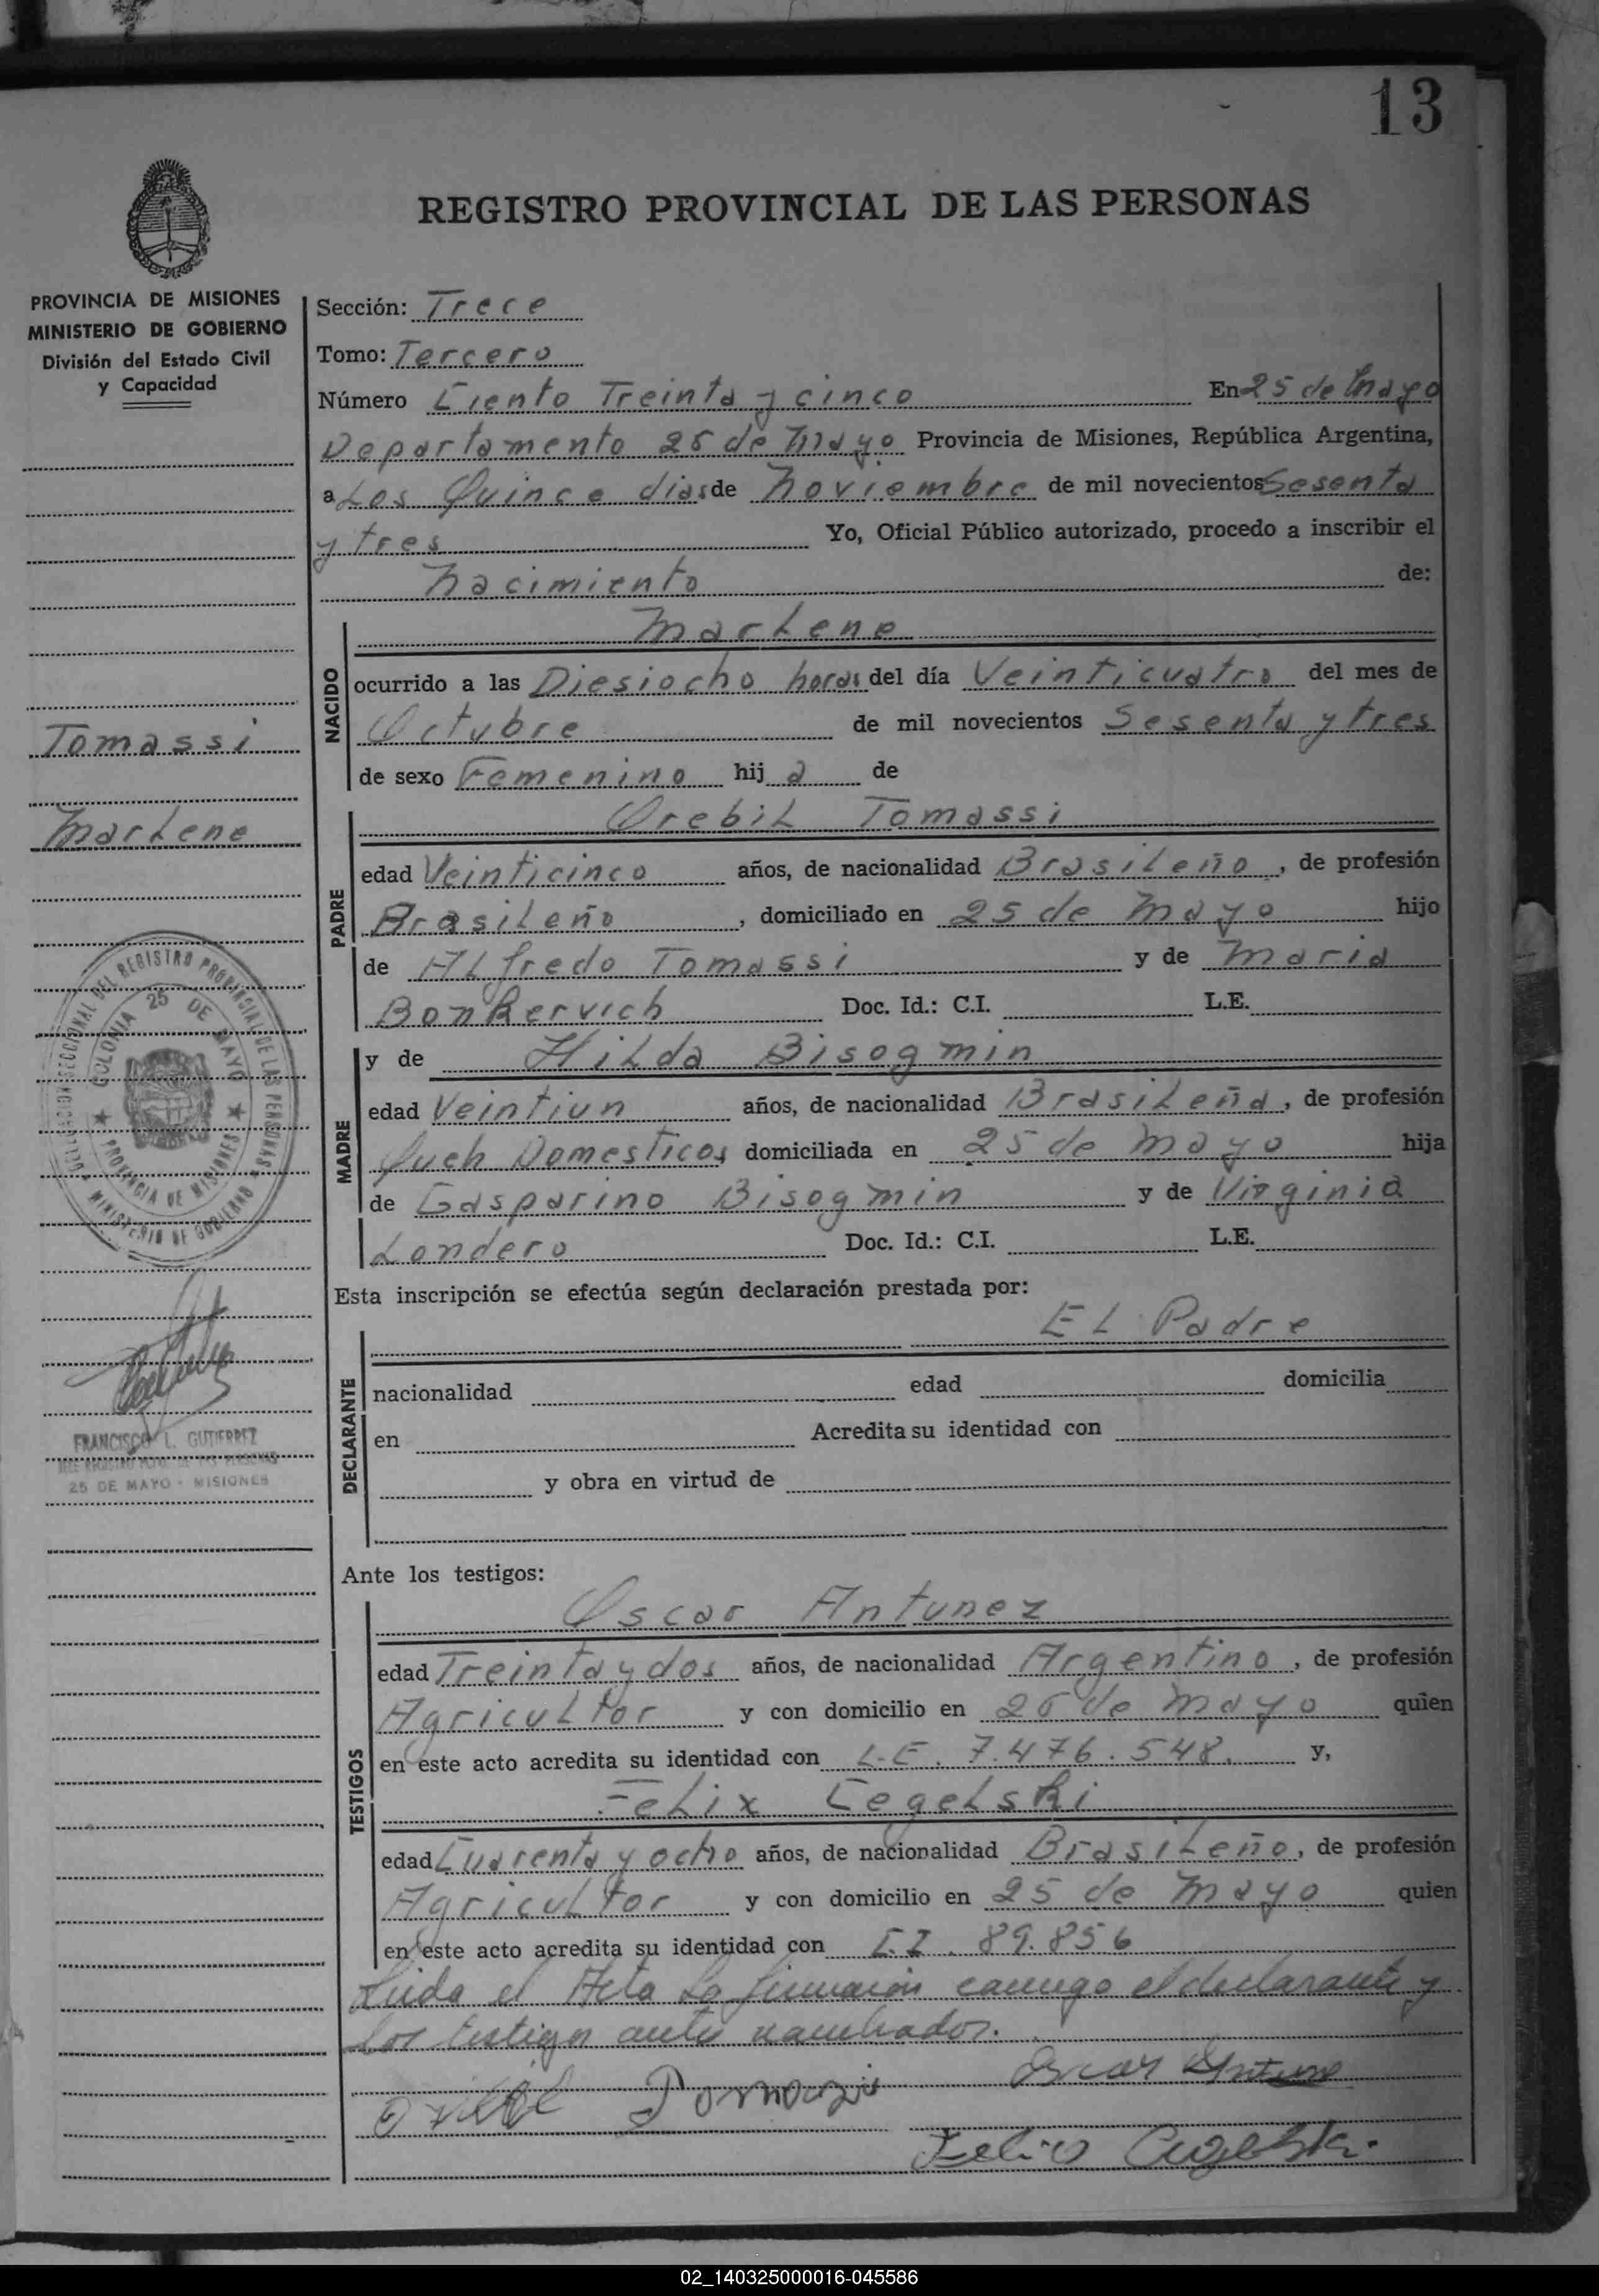 13
REGISTRO PROVINCIAL DE LAS PERSONAS
PROVINCIA DE MISIONES
MINISTERIO DE GOBIERNO
División del Estado Civil
y Capacidad
Tomassi
Marlene
DEL REGISTRO PROVINCIAL DE LAS PERSONAS
MINISTERIO DE GOBIERNO
COLONIA 25 DE MAYO
PROVINCIA DE MISIONES
FRANCISCO L. GUTIERREZ
25 DE MAYO - MISIONES
Sección: Trece
Tomo: Tercero
Número Ciento Treinta y cinco En 25 de Mayo
Departamento 25 de Mayo Provincia de Misiones, República Argentina,
a Los Quince dias de Noviembre de mil novecientos Sesenta
y tres Yo, Oficial Público autorizado, procedo a inscribir el
Nacimiento de:
NACIDO
Marlene
ocurrido a las Diesiocho horas del día Veinticuatro del mes de
Octubre de mil novecientos Sesenta y tres
de sexo Femenino hij a de
PADRE
Orebil Tomassi
edad Veinticinco años, de nacionalidad Brasileño, de profesión
Brasileño, domiciliado en 25 de Mayo hijo
de Alfredo Tomassi y de Maria
Bonkervich Doc. Id.: C.I. L.E.
MADRE
y de Hilda Bisogmin
edad Veintiun años, de nacionalidad Brasileña, de profesión
Queh Domesticos domiciliada en 25 de Mayo hija
de Gasparino Bisogmin y de Virginia
Londero Doc. Id.: C.I. L.E.
Esta inscripción se efectúa según declaración prestada por:
DECLARANTE
El Padre
nacionalidad edad domicilia
en Acredita su identidad con
y obra en virtud de
Ante los testigos:
TESTIGOS
Oscar Antunez
edad Treinta y dos años, de nacionalidad Argentino, de profesión
Agricultor y con domicilio en 25 de Mayo quien
en este acto acredita su identidad con L.E. 7.476.548. y,
Felix Cegelski
edad Cuarenta y ocho años, de nacionalidad Brasileño, de profesión
Agricultor y con domicilio en 25 de Mayo quien
en este acto acredita su identidad con C.I. 89.856
Leida el Acta La firmaron conmigo el declarante y
los testigos ante nombrados.
Oscar Antune
Orebil Tomazi
Felix Cegelski.
02_140325000016-045586